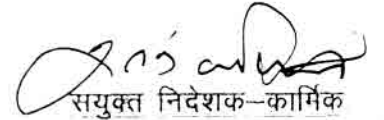 सयुक्त निदेशक–कार्मिक